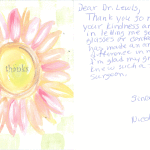 thanks
Dear Dr. Lewis,
Thank you so m
your kindness an
in letting me ge
glasses or contac
has made a gre
difference in m
I'm glad my gr
knew such a
Surgeon.
Since
Nicol